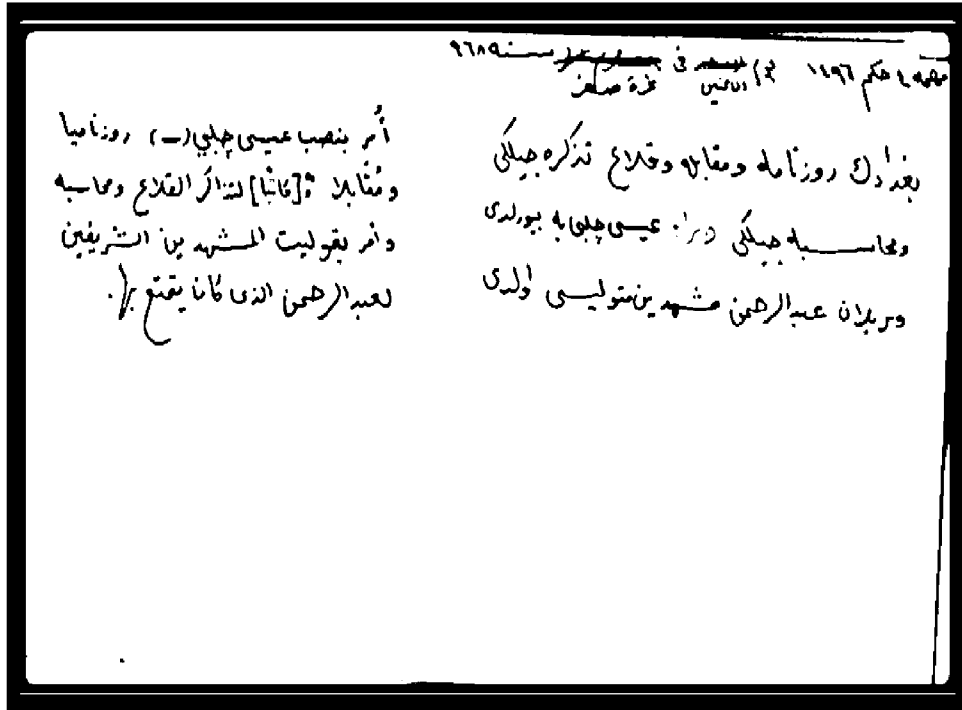 مهمه ٤ حكم ١٤٩٦ في سنة ٩٦٨
غرة صفر
بغدادك روزنامه ومقابله وقلاع تذكره جيلكى
ومحاسبه جيلكى عيسى چلبى يه بيورلدى
عبدالرحمن مشهدين متوليسى اولدى
أمر بنصب عيسى چلبي (ــ) روزناميا
ومقابلا و[كاتبا] لتذاكر القلاع ومحاسبه
وأمر بتوليت المشهدين الشريفين
لعبد الرحمن الذى كان يتمتع بها.